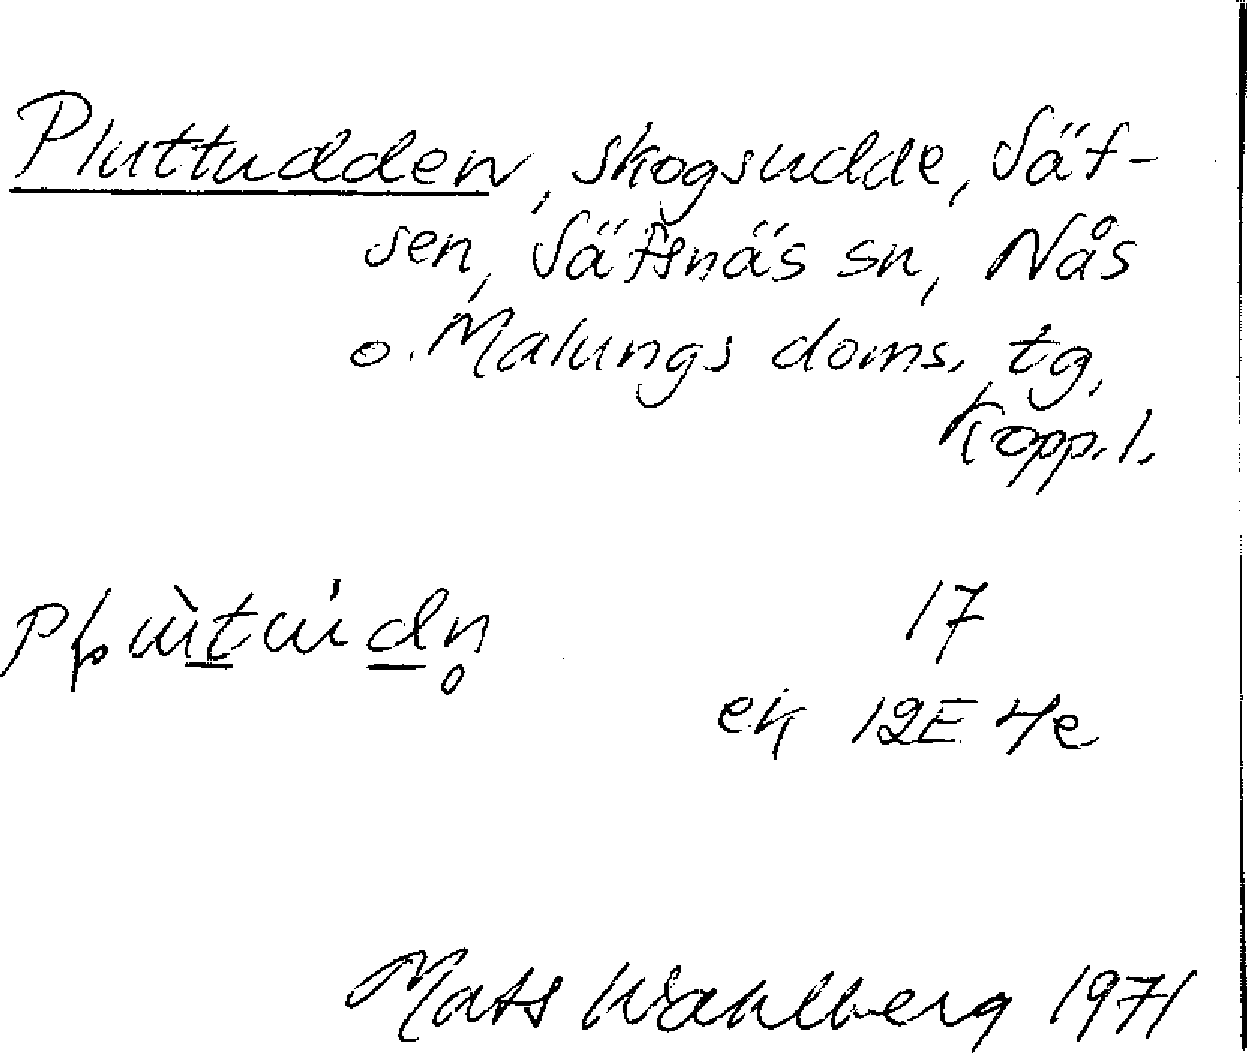 Pluttudden, skogsudde, Säf-
sen, Säfsnäs sn, Nås
o. Malungs doms. tg,
Kopp. l.
17
ek 12E 4e
Mats Wahlberg 1971